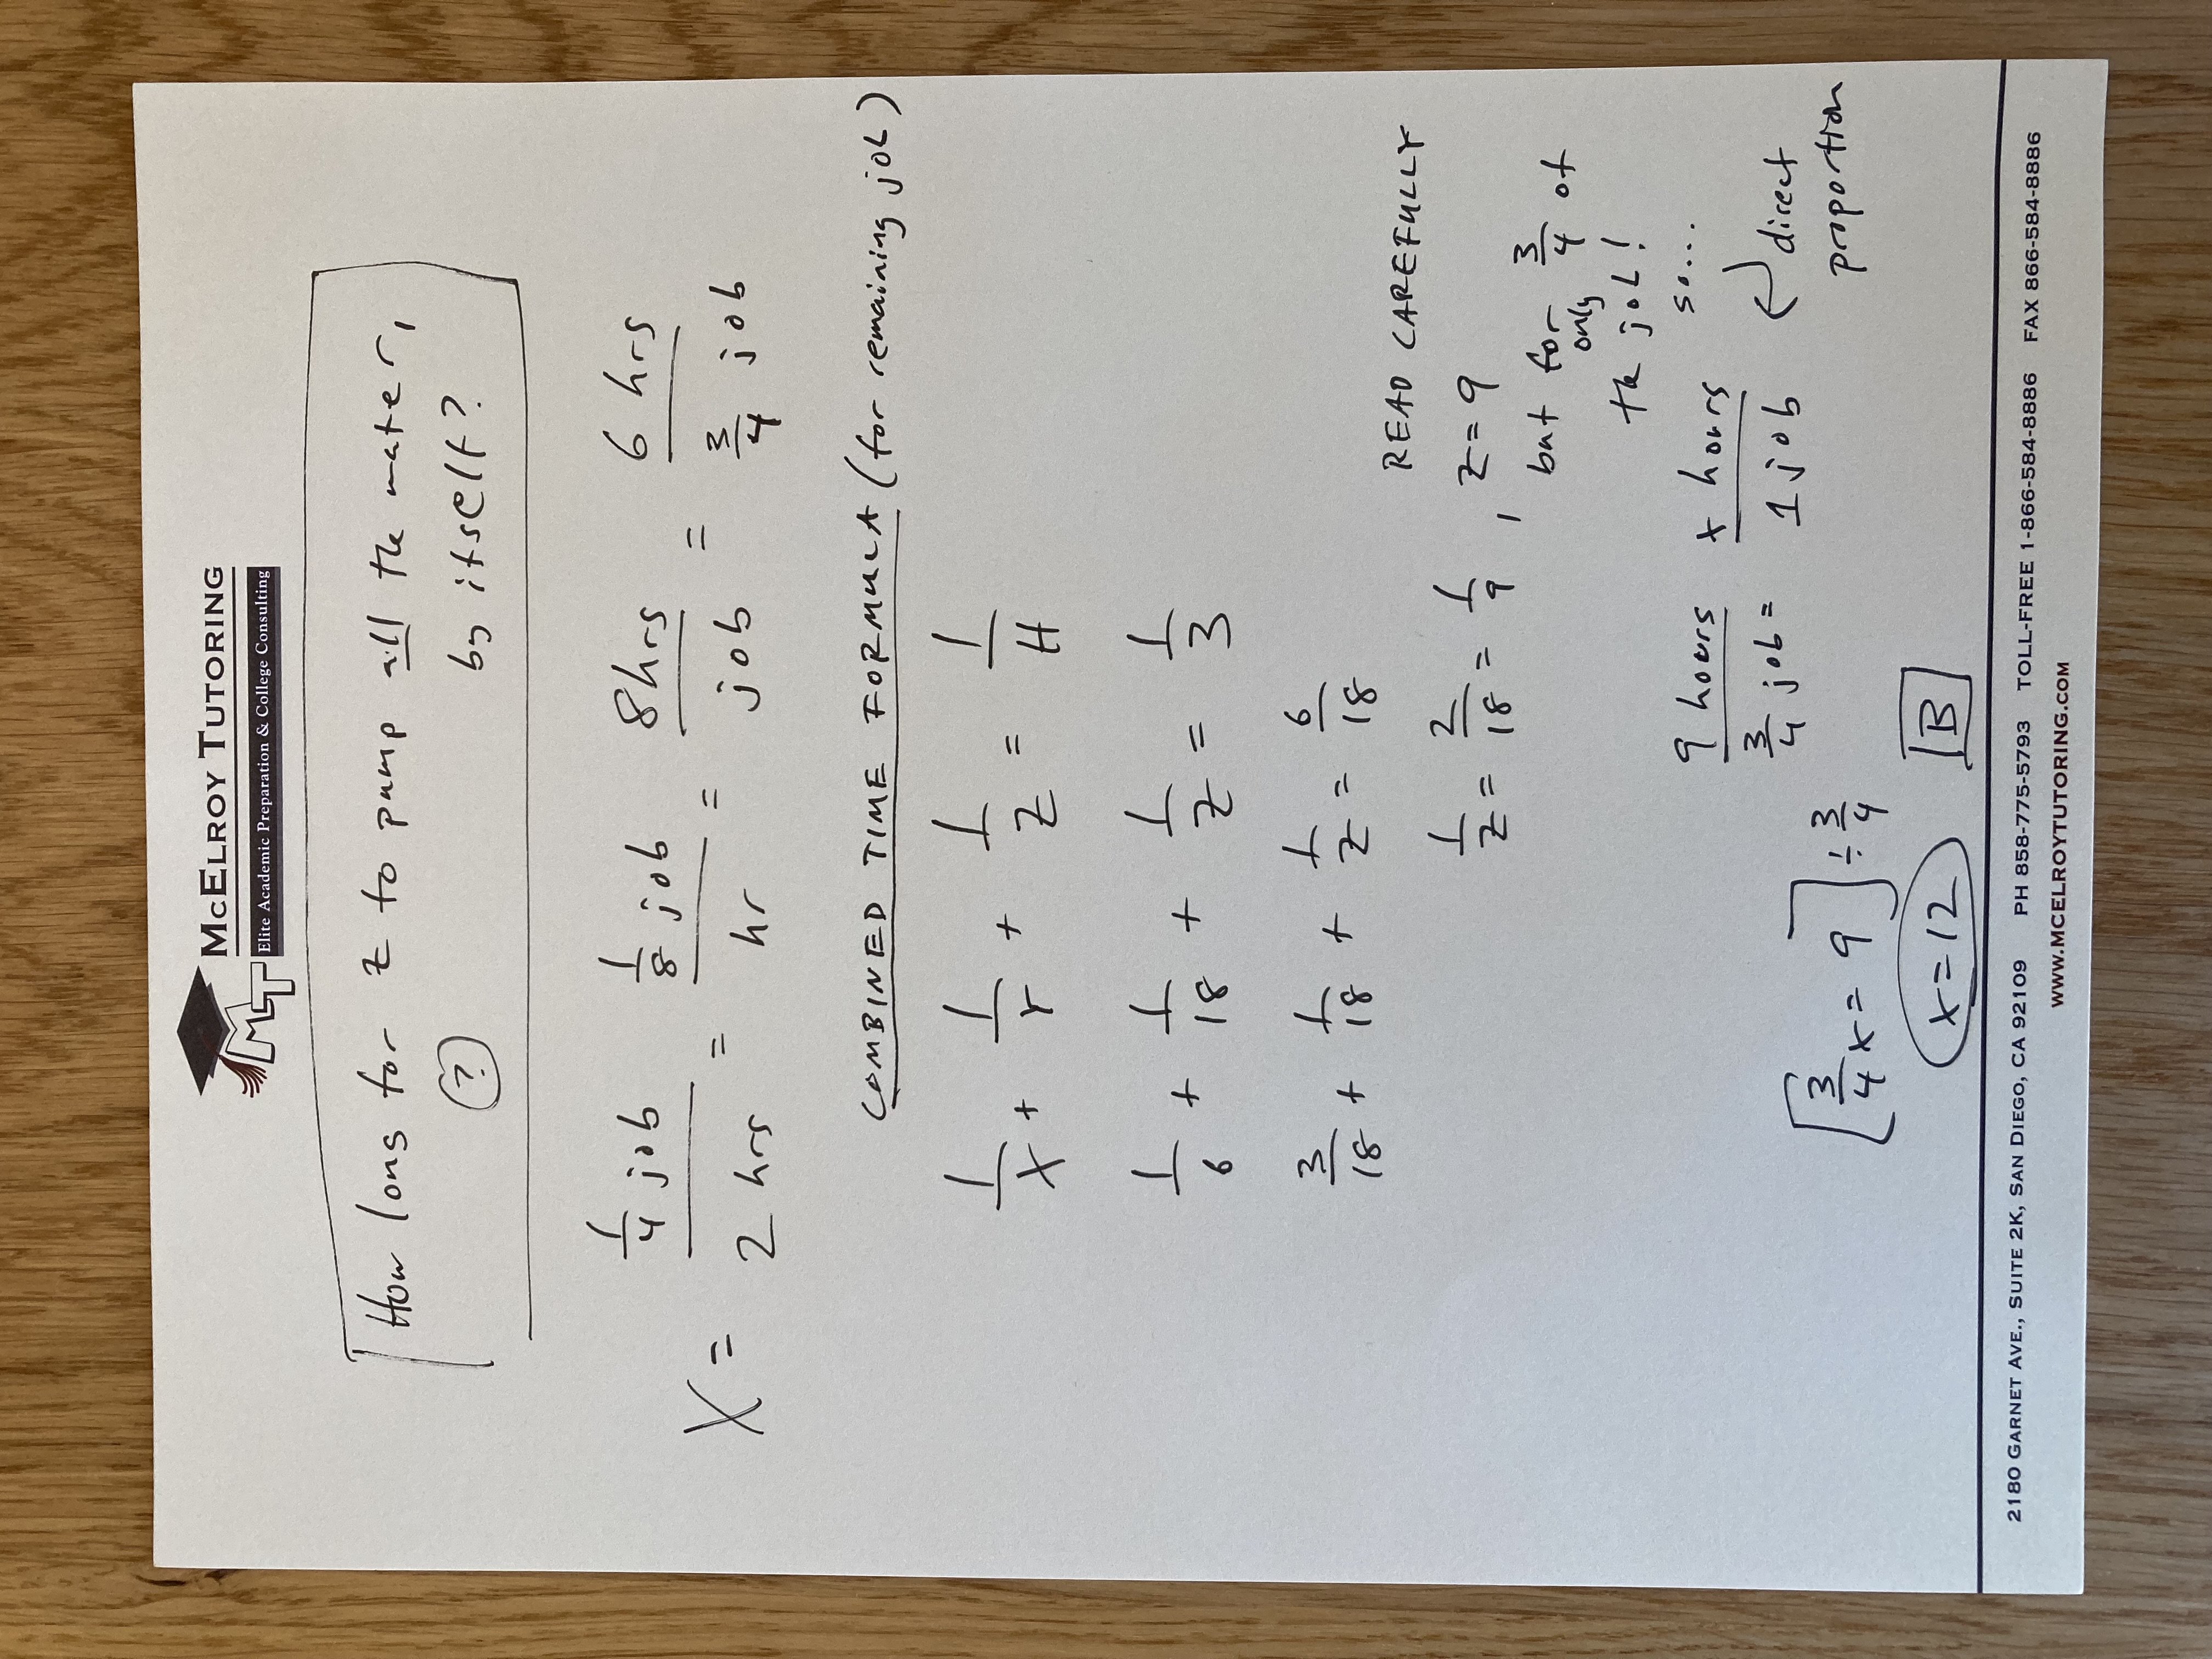 McELROY TUTORING
Elite Academic Preparation & College Consulting
MT
How long for z to pump all the water,
(?) by itself?
X = 1/4 job / 2 hrs = 1/8 job / hr = 8 hrs / job = 6 hrs / 3/4 job
COMBINED TIME FORMULA (for remaining job)
1/X + 1/Y + 1/Z = 1/H
1/6 + 1/18 + 1/Z = 1/3
3/18 + 1/18 + 1/Z = 6/18
READ CAREFULLY
1/Z = 2/18 = 1/9, z = 9
but for only 3/4 of
the job!
so....
9 hours / 3/4 job = x hours / 1 job
direct
proportion
[3/4 x = 9] ÷ 3/4
x = 12
B
2180 GARNET AVE., SUITE 2K, SAN DIEGO, CA 92109 PH 858-775-5793 TOLL-FREE 1-866-584-8886 FAX 866-584-8886
WWW.MCELROYTUTORING.COM